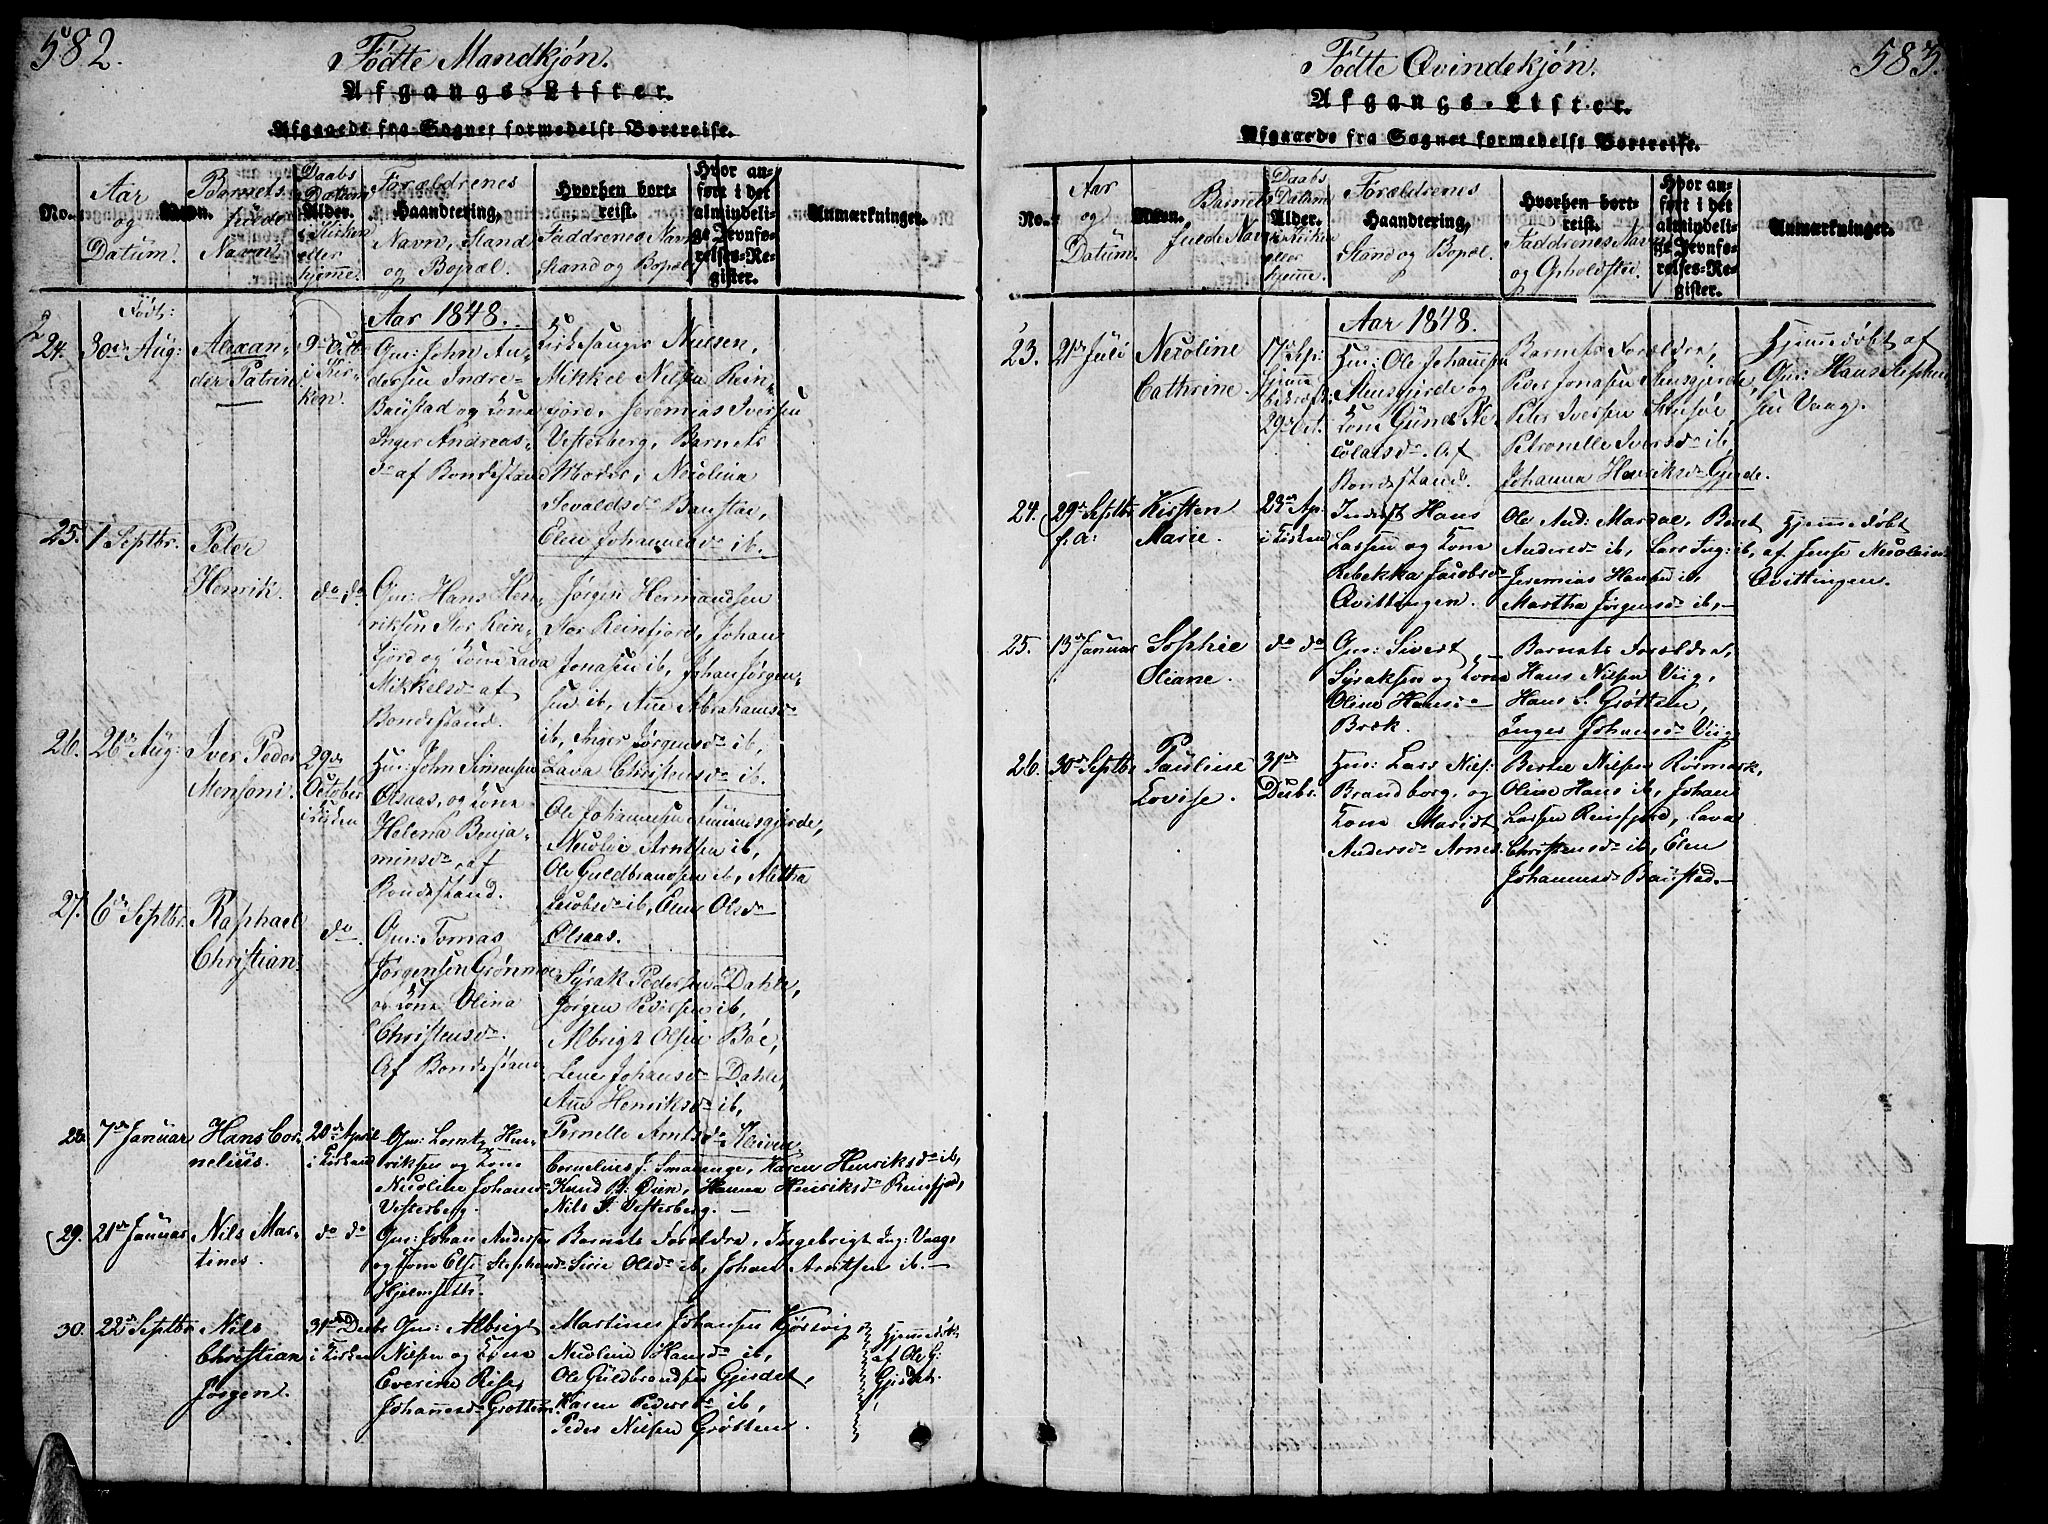 582.
Fødte Mandkjøn.
Afgangs-Lister.
Afgaaede fra Sognet formedelst Bortreise.
No.
Aar og Datum.
Navn.
Barnets fulde Navn.
Daabs Datum
Alder.
i Kirken eller hjemme.
Forældrenes
Haandtering,
Navn, Stand og Bopæl.
Hvorhen bortreist.
Faddrenes Navn Stand og Bopæl
Hvor anført i det almindelige Jevnførelses-Register.
Anmærkninger.
Aar 1848.
Født:
24. 30te Aug:
Alexander Patrin
9de Octb i Kirken
Gm: John Andersen Indre-
Baustad og Kone
Inger Andreas-
dr af Bondestand
Kirkesanger Nielsen,
Mikkel Nilsen Rein-
fjord, Jeremias Iversen
Vesterberg, Barnets
Moder, Nicolina
Sevaldsdr Baustad,
Elen Johannesdr ib.
25. 1 Septbr.
Peter
Henrik.
do do
Gm: Hans Hen-
riksen Stor Rein-
fjord og Kone Lava
Mikkelsdr af
Bondestand.
Jørgen Hermandsen
Stor Reinfjord, Johan
Jonasen ib, Johan Jørgen-
sen ib, Ane Abrahamsdr
ib, Inger Jørgensdr ib,
Lava Christensdr ib.
26. 26de Aug:
Iver Peder
Mensoni.
29de
October
i Kirken
Hm: John Simensen
Olsaas, og Kone
Helena Benja-
minsdr af
Bondestand.
Ole Johannesen
Nicolai Arntsen ib,
Ole Guldbrandsen ib, Mettha
Jacobsdr ib, Elen Olsdr
Olsaas.
27. 6te Septbr.
Raphael
Christian.
do.
Gm: Tomas
Jørgensen Grønmoe
og Kone Olina
Christensdr.
Af Bondestand
Syrak Pedersen Dahle,
Jørgen Pedersen ib,
Albrigt Olsen Böe,
Lene Johansdr Dahle,
Ane Henriksdr ib,
Pernelle Arntsdr Kleiven.
28. 7de Januar
Hans Cor-
nelius.
20de April
i Kirken
Gm: Lorntz Hen-
riksen og Kone
Nicoline Johansdr
Vesterberg.
Cornelius J. Smaaenge, Karen Henriksdr ib,
Knud B: Øien, Hanna Henriksdr Reinfjord,
Nils J. Vesterberg.
29. 21de Januar
Nils Mar-
tines.
do do
Gm: Johan Andersen
og Kone Else Stephensdr
Hjelmseth.
Barnets Forældre, Ingebrigt Ing: Vaag,
Sirie Olsdr ib, Johan Arntsen ib.
30. 22de Septbr
Nils
Christian
Jørgen.
31de Decbr
i Kirken
Gm: Albrigt
Nilsen og Kone
Everine Rise
Johannesdr Grøtten.
Martines Johansen Kjørsvig
Nicoline Hansdr ib,
Ole Guldbrandsen Gjerdet,
Karen Pedersdr ib,
Peder Nilsen Grøtten.
Hjemmedøbt
af Ole G:
Gjerdet.
583.
Fødte Qvindekjøn.
Afgangs-Lister.
Afgaaede fra Sognet formedelst Bortreise.
No.
Aar og Datum.
Navn.
Barnets fulde Navn
Daabs Datum
Alder.
i Kirken eller hjemme.
Forældrenes
Haandtering,
Stand og Bopæl.
Hvorhen bortreist.
Faddrenes Navn og Opholdsted
Hvor anført i det almindelige Jevnførelses-Register.
Anmærkninger.
Aar 1848.
23. 21de Juli
Nicoline
Cathrine
17de Sep:
hjemme
29de Oct.
Hm: Ole Johansen
Mensgjerde og
Kone Gunde Ni-
colaisdr. Af
Bondestand.
Barnets Forældre,
Peder Jonasen Mensgjerde,
Peter Iversen
Petronelle Iversdr ib,
Johanna Henriksdr Gjerde.
Hjemmedøbt af
Gm: Hans Stephen-
sen Vaag.
24. 29de Septbr
f. A:
Kirsten
Marie.
23de Ap.
i Kirken
Inderst Hans
Larsen og Kone
Rebekka Jacobsdr
Qvittingen.
Ole And: Mardal, Beret
Andersdr ib, Lars Ing: ib,
Jeremias Hansen ib,
Martha Jørgensdr ib,
Hjemmedøbt
af Jense Nicolaisdr
Qvittingen.
25. 13de Januar
Sophie
Oliane.
do do
Gm: Sivert
Syraksen og Kone
Oline Hansdr
Bræk.
Barnets Forældre,
Hans Nilsen Viig,
Hans S. Grøtten,
Inger Johansdr Viig
26. 30te Septbr
Pauline
Lovise.
31de
Decbr.
Hm: Lars Nils:
Brandborg, og
Kone Marit
Andersdr Arnes.
Bertel Nilsen Rørmark,
Oline Hans ib, Johan
Larsen Reinfjord, Lava
Christensdr ib, Elen
Johannesdr Baustad.